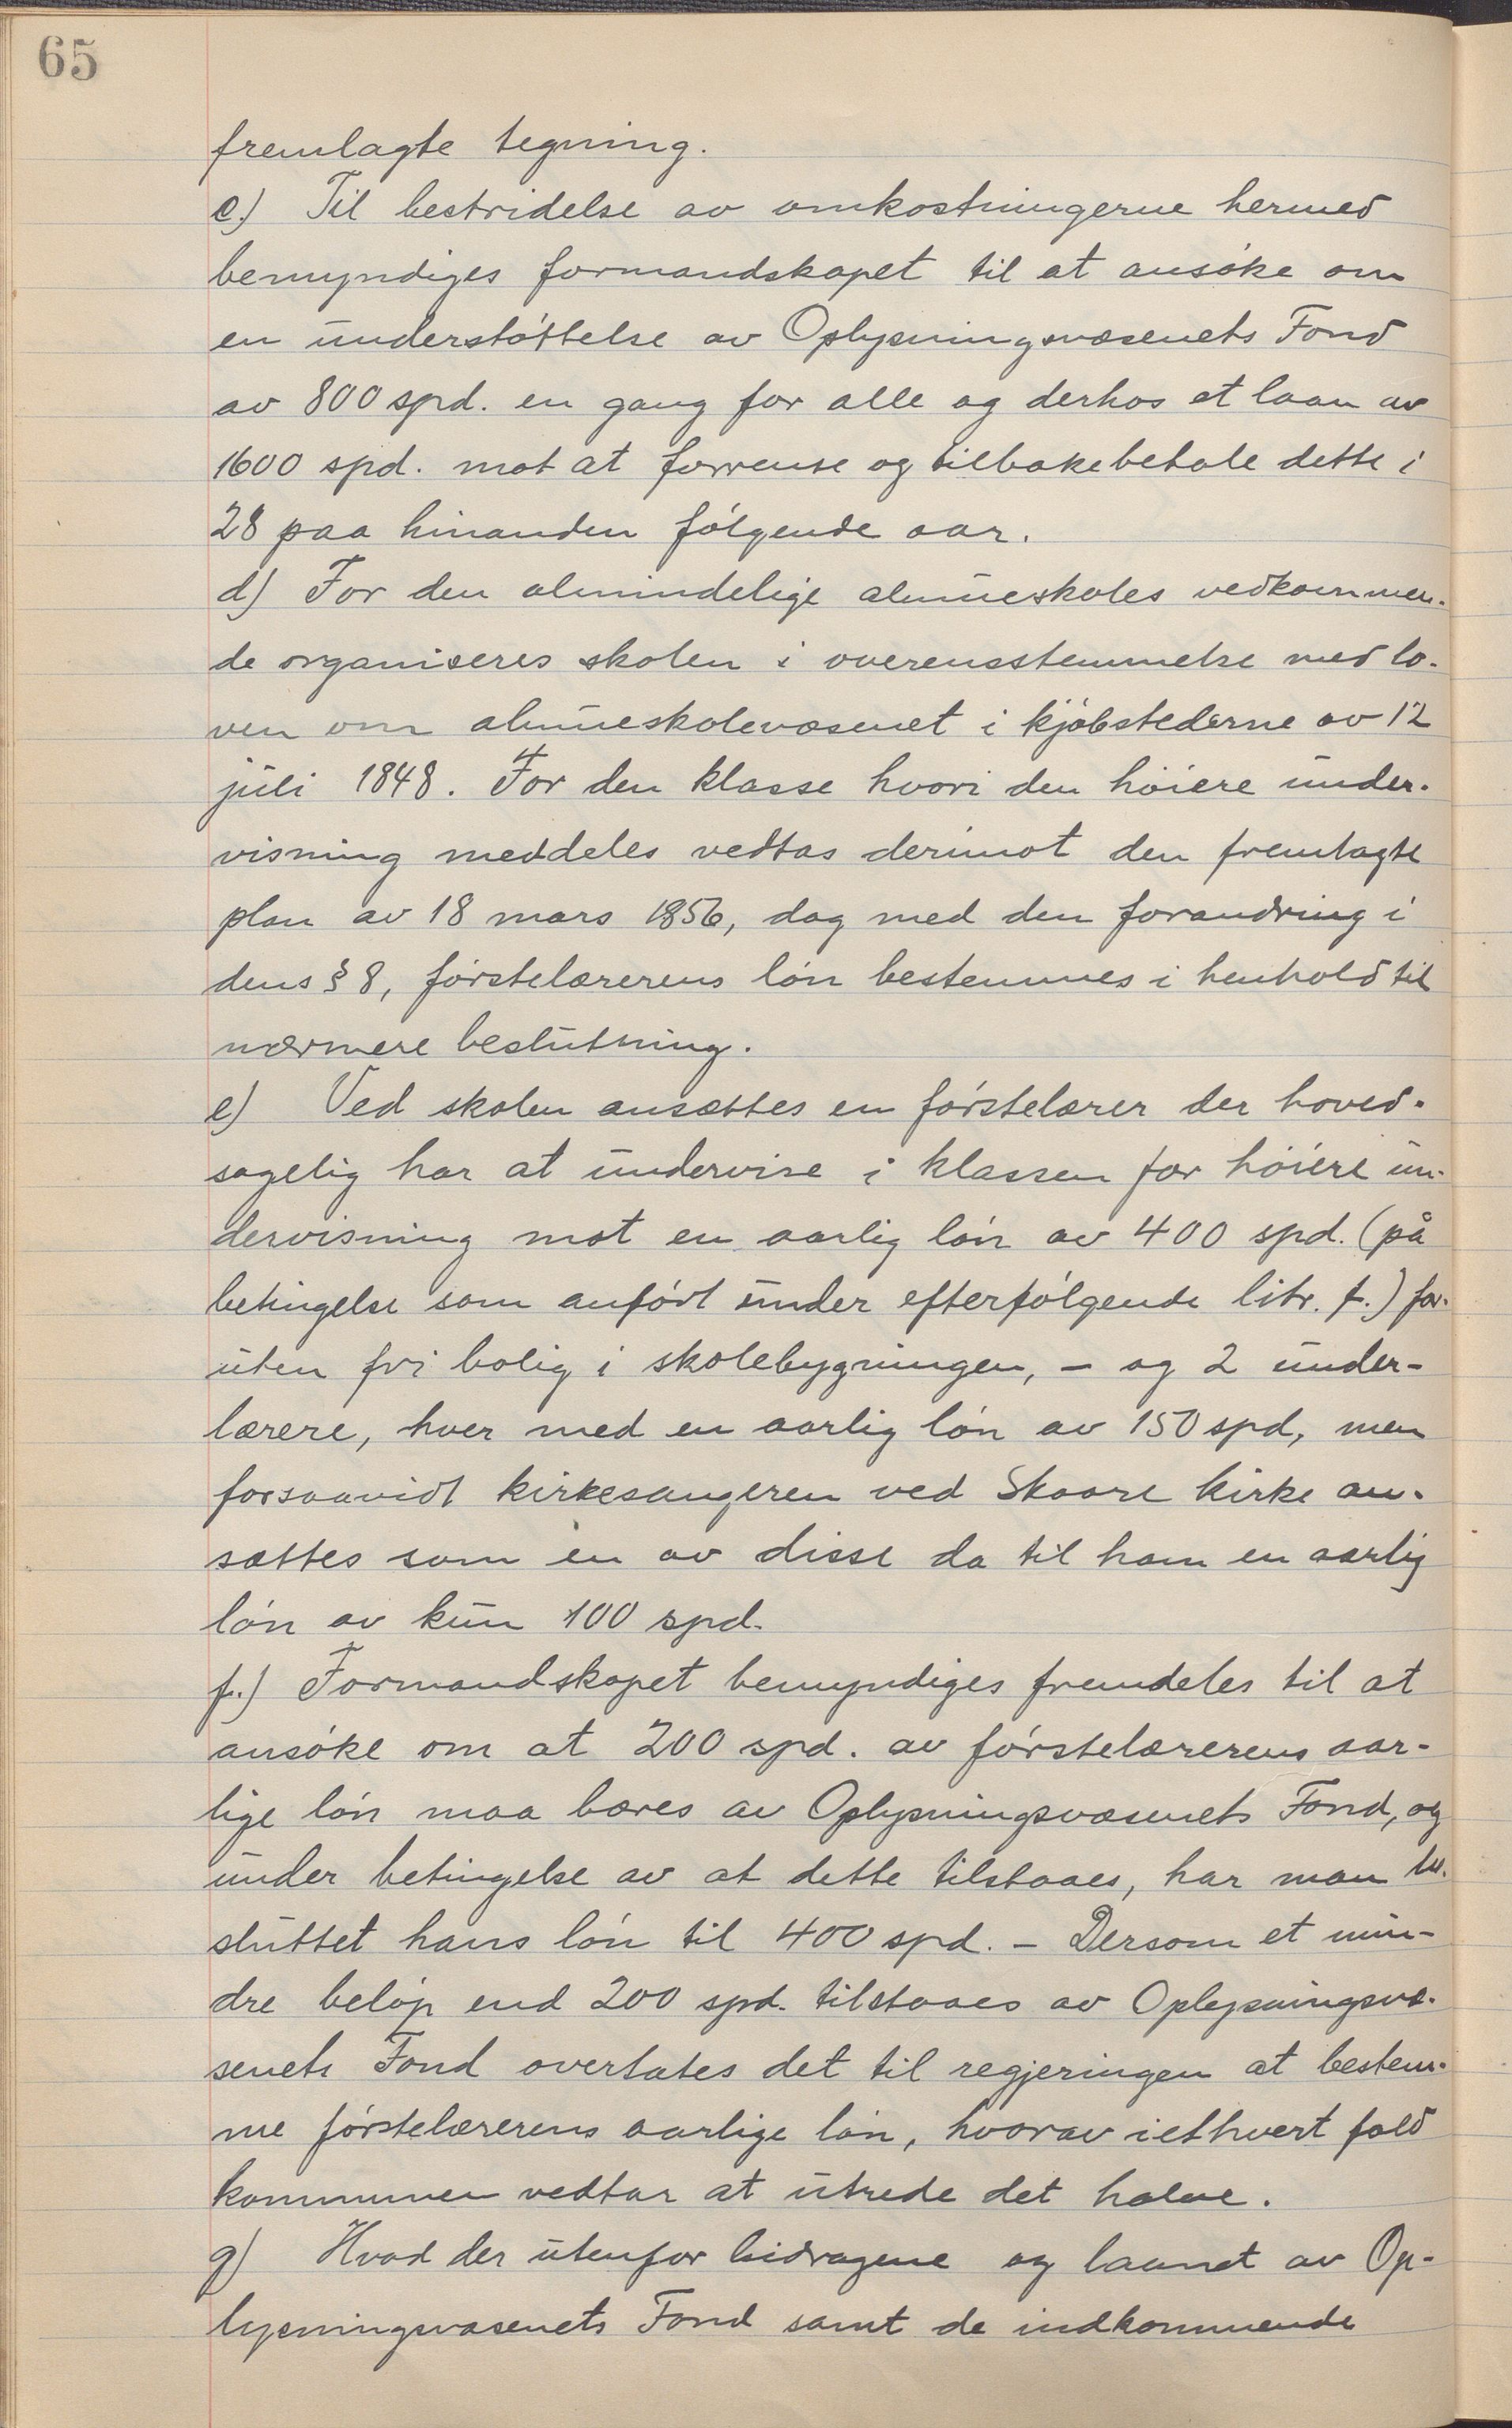 65
fremlagte tegning.
c.) Til bestridelse av omkostningerne hermed
bemyndiges formandskapet til at ansøke om
en understøttelse av Oplysningsvæsenets Fond
av 800 spd. en gang for alle og derhos et laan av
1600 spd. mot at forrense og tilbakebetale dette i
28 paa hinanden følgende aar.
d) For den almindelige almueskoles vedkommen-
de organiseres skolen i overensstemmelse med lo-
ven om almueskolevæsenet i kjøbstederne av 12
juli 1848. For den klasse hvori den høiere under-
visning meddeles vedtas derimot den fremlagte
plan av 18 mars 1856, dog med den forandring i
dens § 8, førstelærerens løn bestemmes i henhold til
nærmere beslutning.
e) Ved skolen ansættes en førstelærer der hoved-
sagelig har at undervise i klassen for høiere un-
dervisning mot en aarlig løn av 400 spd. (på
betingelse som anført under efterfølgende litr. f.) for-
uten fri bolig i skolebygningen, - og 2 under-
lærere, hver med en aarlig løn av 150 spd, men
forsaavidt kirkesangeren ved Skaare kirke an-
sættes som en av disse da til ham en aarlig
løn av kun 100 spd.
f.) Formandskapet bemyndiges fremdeles til at
ansøke om at 200 spd. av førstelærerens aar-
lige løn maa bæres av Oplysningsvæsenets Fond, og
under betingelse av at dette tilstaaes, har man be-
sluttet hans løn til 400 spd. - Dersom et min-
dre beløp end 200 spd. tilstaaes av Oplysningsvæ-
senets Fond overlates det til regjeringen at bestem-
me førstelærerens aarlige løn, hvorav iethvert fald
kommunen vedtar at utrede det halve.
g) Hvad der utenfor bidragene og laanet av Op-
lysningsvæsenets Fond samt de indkommende